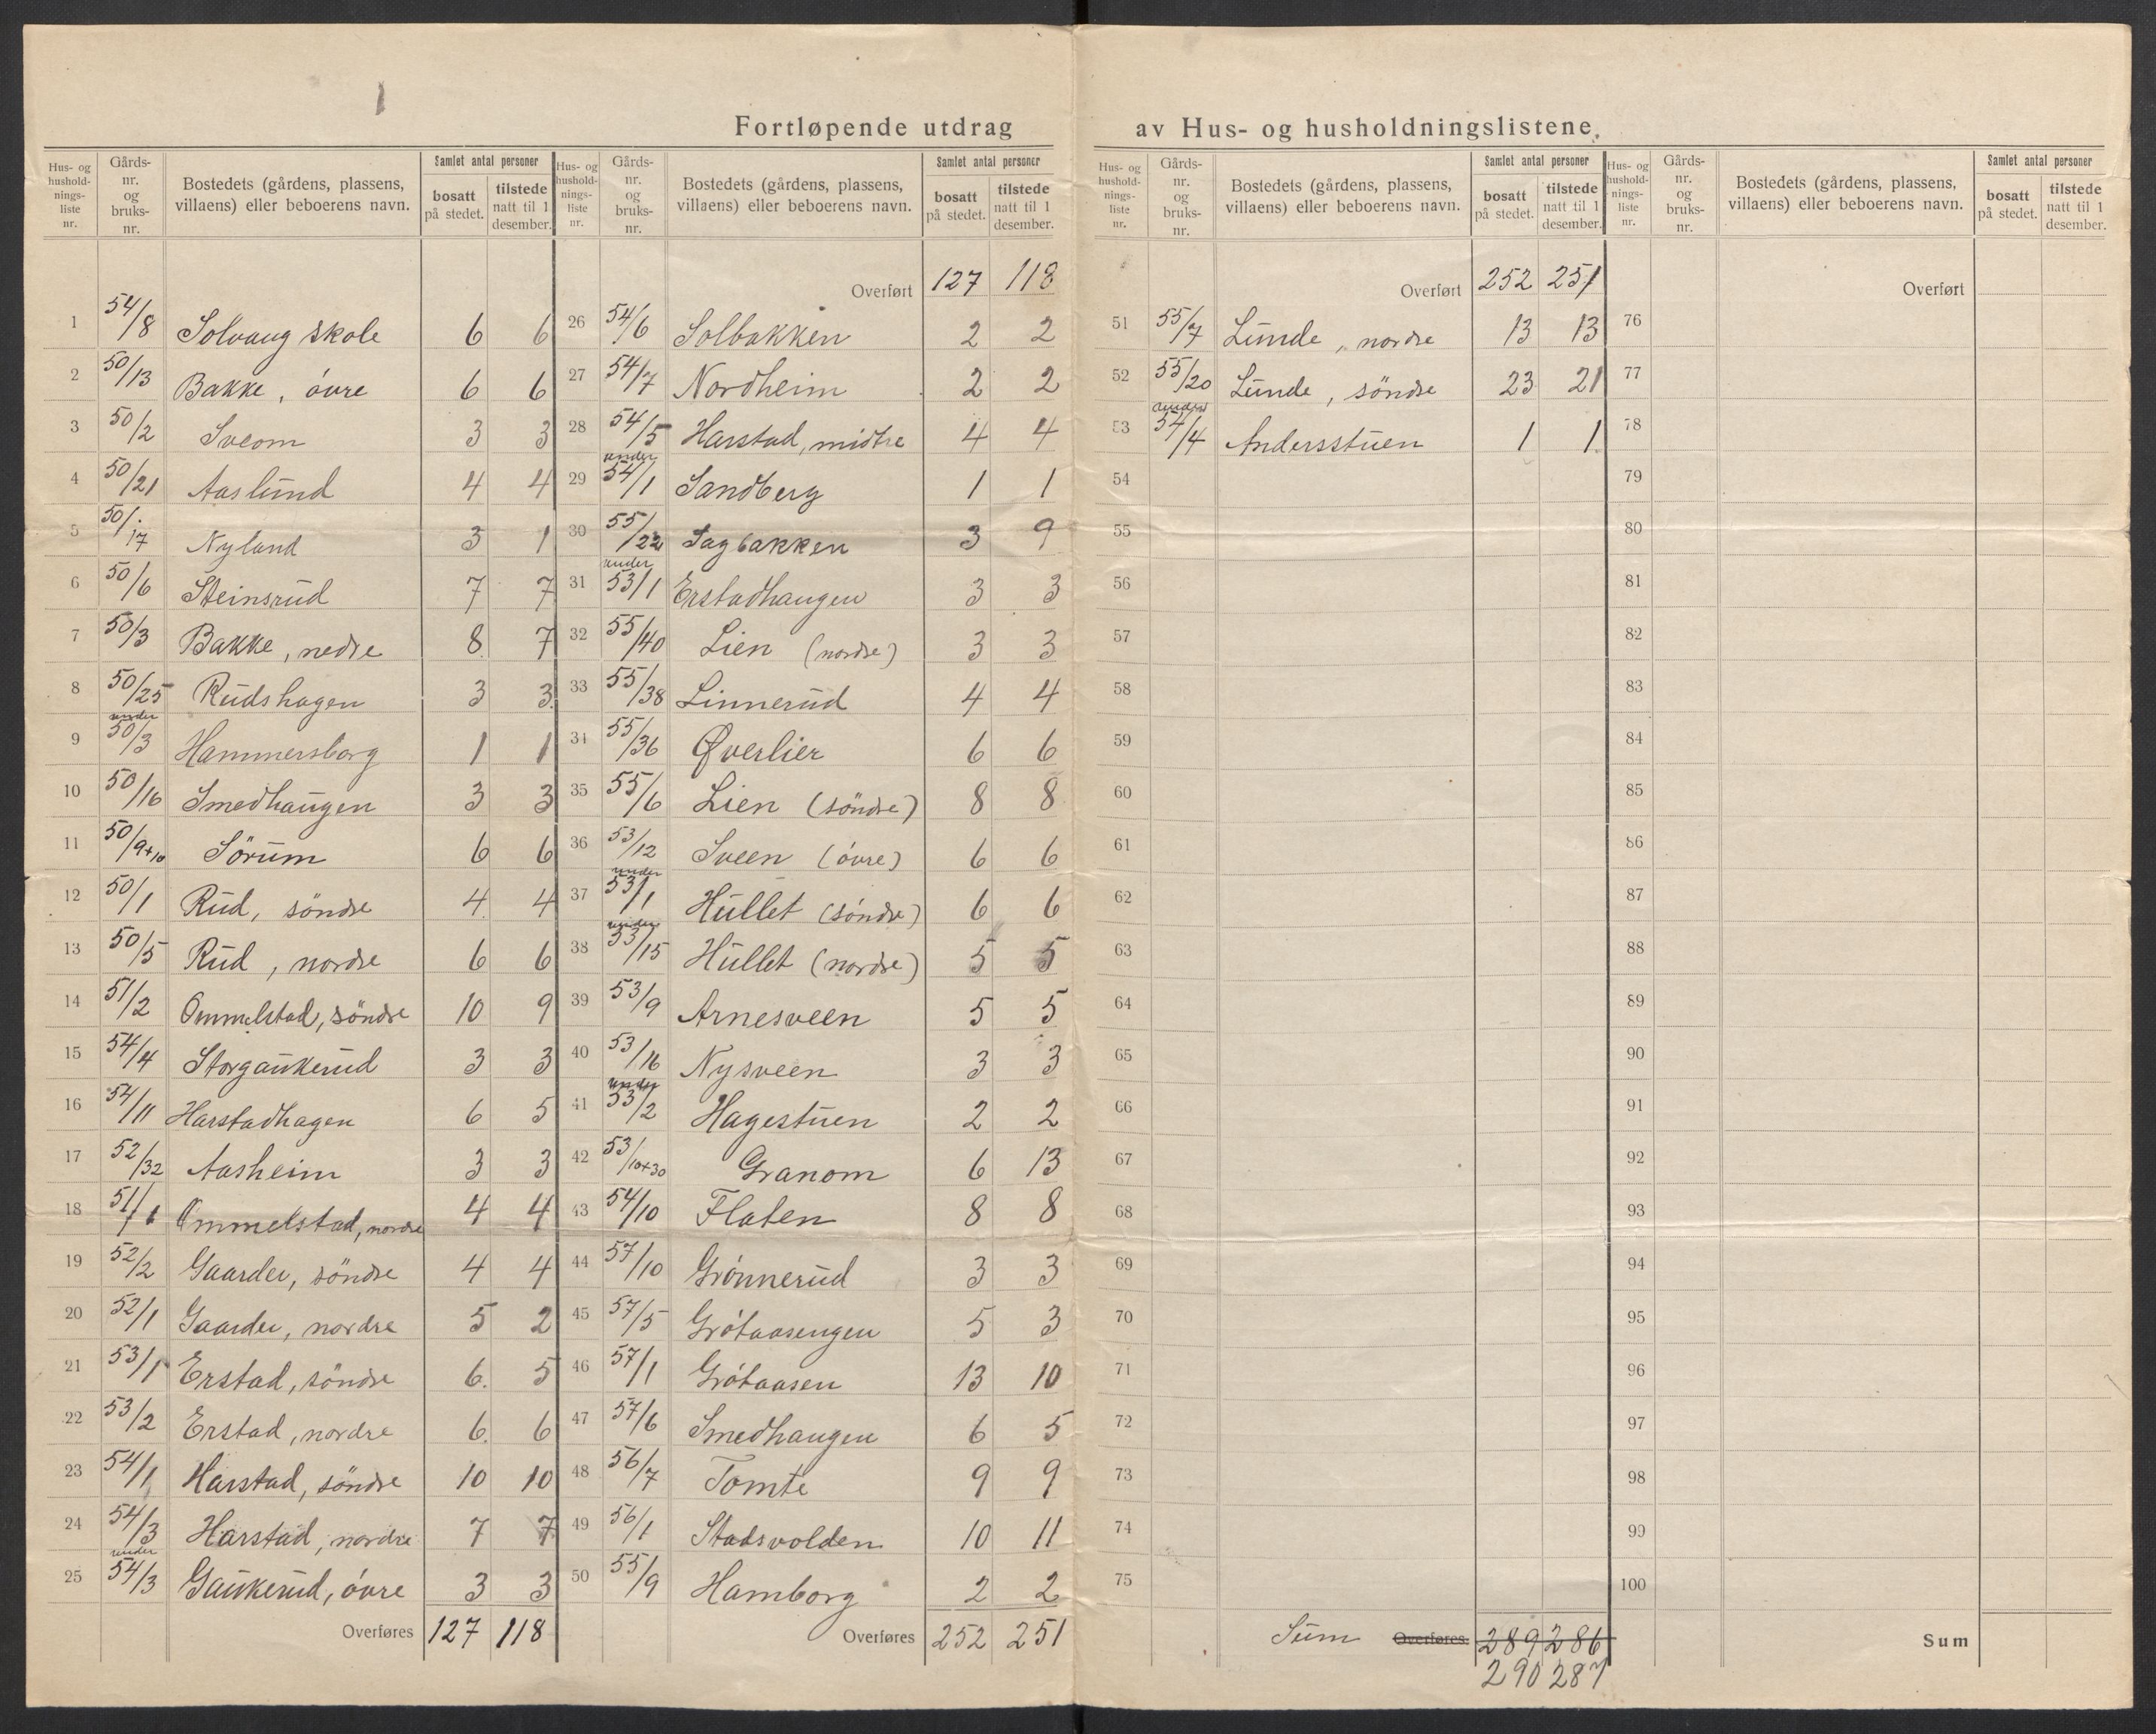 Fortløpende utdrag av Hus- og husholdningslistene.
Hus- og husholdnings-liste nr. | Gårds-nr. og bruks-nr. | Bostedets (gårdens, plassens, villaens) eller beboerens navn. | Samlet antal personer: bosatt på stedet. | tilstede natt til 1 desember.
1 54/8 Solvang skole 6 6
2 50/13 Bakke, övre 6 6
3 50/2 Sveom 3 3
4 50/21 Aaslund 4 4
5 50/17 Nyland 3 1
6 50/6 Steinsrud 7 7
7 50/3 Bakke, nedre 8 7
8 50/25 Rudshagen 3 3
9 under 50/3 Hammersborg 1 1
10 50/16 Smedhaugen 3 3
11 50/9+10 Sörum 6 6
12 50/1 Rud, söndre 4 4
13 50/5 Rud, nordre 6 6
14 51/2 Ommelstad, söndre 10 9
15 54/4 Storgaukerud 3 3
16 54/11 Harstadhagen 6 5
17 52/32 Aasheim 3 3
18 51/1 Ommelstad, nordre 4 4
19 52/2 Gaarder, söndre 4 4
20 52/1 Gaarder, nordre 5 2
21 53/1 Erstad, söndre 6 5
22 53/2 Erstad, nordre 6 6
23 54/1 Harstad, söndre 10 10
24 54/3 Harstad, nordre 7 7
25 under 54/3 Gaukerud, övre 3 3
Overføres 127 118
Hus- og husholdnings-liste nr. | Gårds-nr. og bruks-nr. | Bostedets (gårdens, plassens, villaens) eller beboerens navn. | Samlet antal personer: bosatt på stedet. | tilstede natt til 1 desember.
Overført 127 118
26 54/6 Solbakken 2 2
27 54/7 Nordheim 2 2
28 54/5 Harstad, midtre 4 4
29 under 54/1 Sandberg 1 1
30 55/22 Sagbakken 3 9
31 under 53/1 Erstadhaugen 3 3
32 55/40 Lien (nordre) 3 3
33 55/38 Linnerud 4 4
34 55/36 Øverlier 6 6
35 55/6 Lien (söndre) 8 8
36 53/12 Sveen (övre) 6 6
37 under 53/1 Hullet (söndre) 6 6
38 under 53/15 Hullet (nordre) 5 5
39 53/9 Arnesveen 5 5
40 53/16 Nysveen 3 3
41 under 53/2 Hagestuen 2 2
42 53/10+30 Granom 6 13
43 54/10 Flaten 8 8
44 57/10 Grönnerud 3 3
45 57/5 Grötaasengen 5 3
46 57/1 Grötaasen 13 10
47 57/6 Smedhaugen 6 5
48 56/7 Tomte 9 9
49 56/1 Stadsvolden 10 11
50 55/9 Hamborg 2 2
Overføres 252 251
Hus- og husholdnings-liste nr. | Gårds-nr. og bruks-nr. | Bostedets (gårdens, plassens, villaens) eller beboerens navn. | Samlet antal personer: bosatt på stedet. | tilstede natt til 1 desember.
Overført 252 251
51 55/7 Lunde, nordre 13 13
52 55/20 Lunde, söndre 23 21
53 under 54/4 Andersstuen 1 1
54
55
56
57
58
59
60
61
62
63
64
65
66
67
68
69
70
71
72
73
74
75
Sum Overføres. 289 286
290 287
Hus- og husholdnings-liste nr. | Gårds-nr. og bruks-nr. | Bostedets (gårdens, plassens, villaens) eller beboerens navn. | Samlet antal personer: bosatt på stedet. | tilstede natt til 1 desember.
Overført
76
77
78
79
80
81
82
83
84
85
86
87
88
89
90
91
92
93
94
95
96
97
98
99
100
Sum